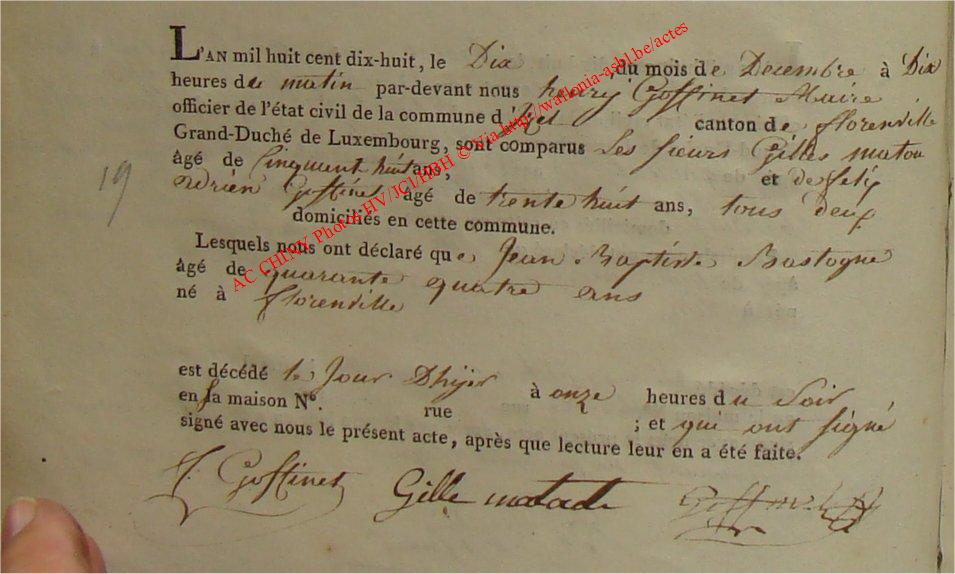 L'AN mil huit cent dix-huit, le Dix du mois de Decembre à Dix
heures du matin par-devant nous henry Goffinet Maire
officier de l'état civil de la commune d'izel canton de florenville
Grand-Duché de Luxembourg, sont comparus Les sieurs Gilles
âgé de Cinquent huit ans, et
19
adrien Goffinet âgé de trente huit ans, tous deux
domiciliés en cette commune.
Lesquels nous ont déclaré que Jean Baptiste Bastogne
âgé de quarante quatre ans
né à florenville
est décédé le Jour Dhijer à onze heures du Soir
en sa maison N°. rue ; et qui ont signé
signé avec nous le présent acte, après que lecture leur en a été faite.
Goffinet Gille
AC CHINY Photos HV/JCI/HBH © Via http://wallonia-asbl.be/actes